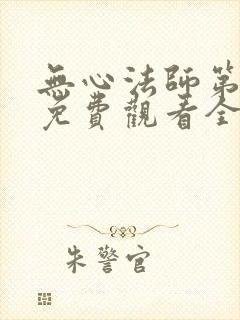 無心法師第
免費觀看全
朱警官